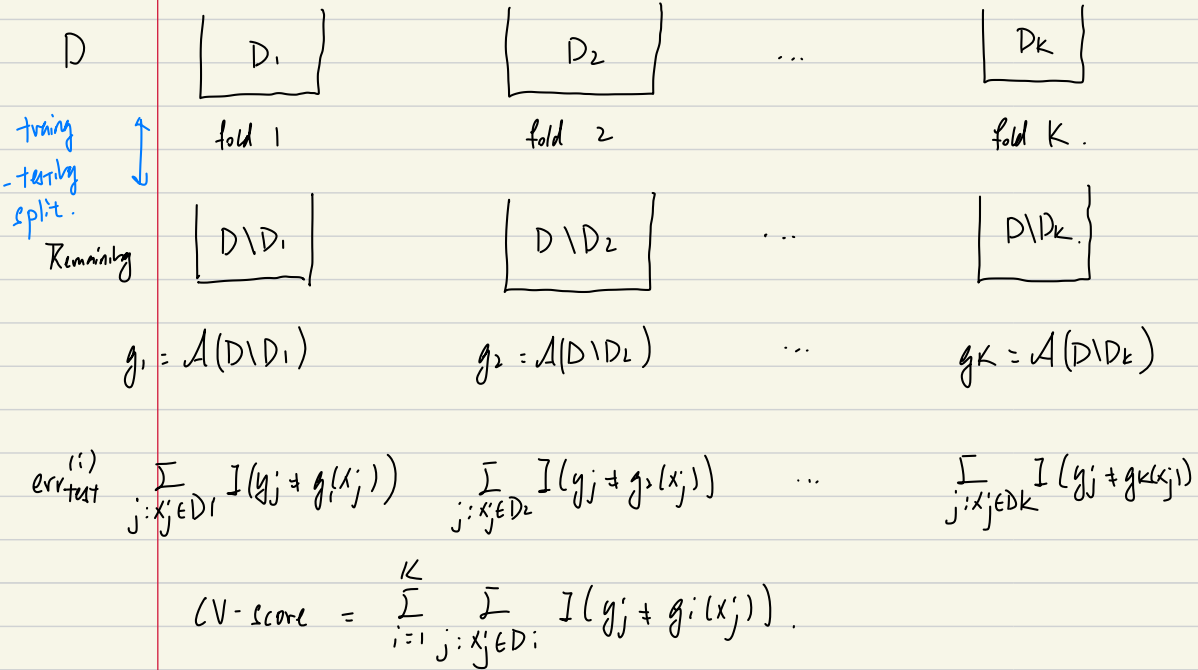 D D₁ D₂ ... Dₖ
traing
- testing
split.
fold 1 fold 2 fold K.
Remaining D\D₁ D\D₂ ... D\Dₖ.
g₁ = A(D\D₁) g₂ = A(D\D₂) ... gK = A(D\Dₖ)
err_test^(i) Σ_{j:xⱼ∈D1} I(yⱼ ≠ g₁(xⱼ)) Σ_{j:xⱼ∈D₂} I(yⱼ ≠ g₂(xⱼ)) ... Σ_{j:xⱼ∈DK} I(yⱼ ≠ gK(xⱼ))
CV-score = Σ_{i=1}^{K} Σ_{j:xⱼ∈Di} I(yⱼ ≠ gi(xⱼ)).